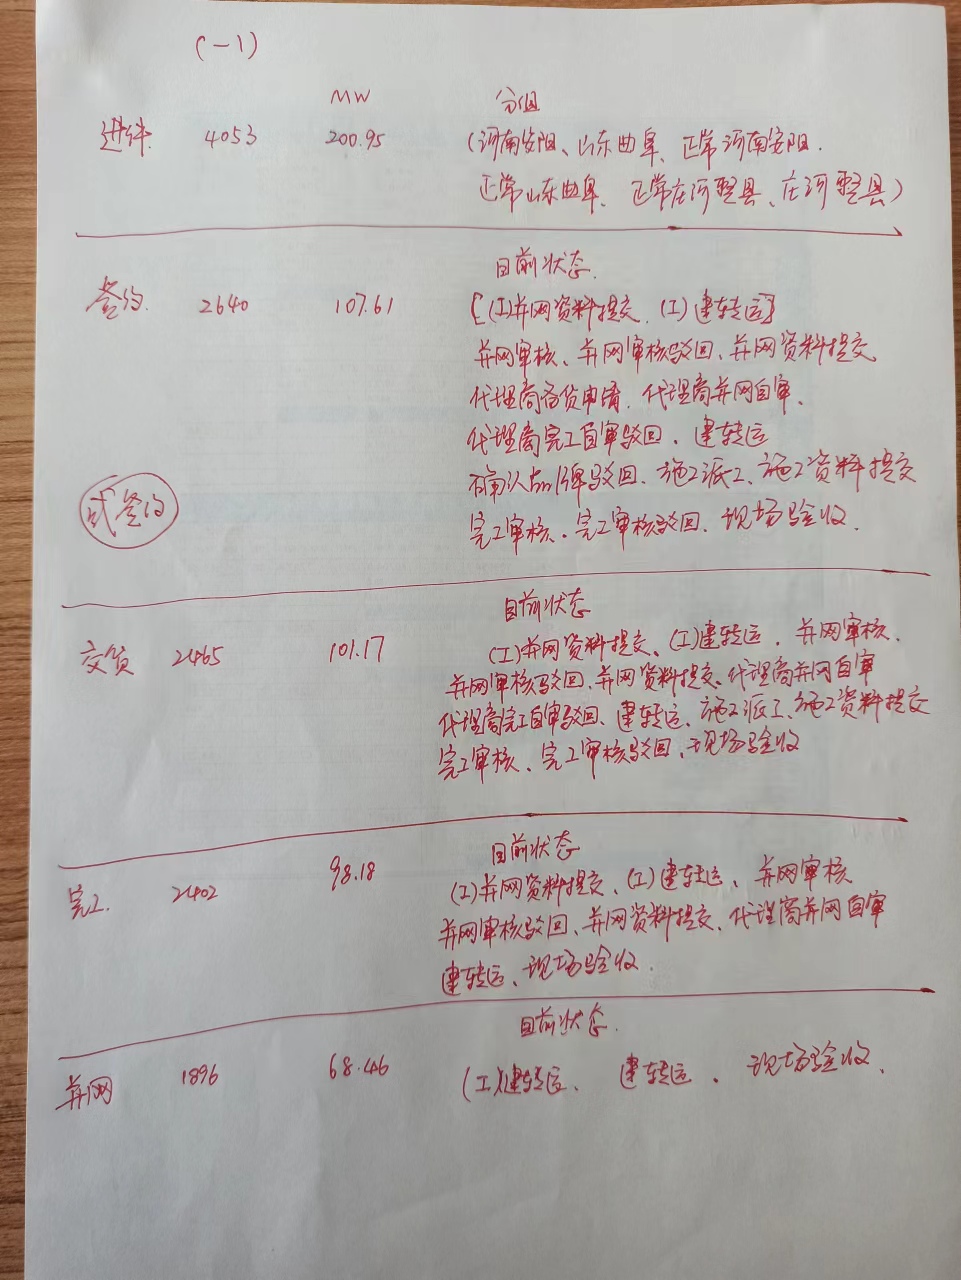 (一1)
MW 分组
进件. 4053 200.95 (河南安阳、山东曲阜、正常河南安阳.
正常山东曲阜、正常庄河整县、庄河整县)
目前状态.
签约. 2640 107.61 [(工)并网资料提交、(工)建转运]
并网审核、并网审核驳回、并网资料提交
代理商备货申请、代理商并网自审、
代理商完工自审驳回、建转运
确认品牌驳回、施工派工、施工资料提交
签约
完工审核、完工审核驳回、现场验收.
目前状态
交货 2465 101.17 (工)并网资料提交、(工)建转运、并网审核、
并网审核驳回、并网资料提交、代理商并网自审
代理商完工自审驳回、建转运、施工派工、施工资料提交
完工审核、完工审核驳回、现场验收
目前状态
完工. 2402 98.18 (工)并网资料提交、(工)建转运、并网审核
并网审核驳回、并网资料提交、代理商并网自审
建转运、现场验收.
目前状态.
并网 1896 68.46 (工)建转运、建转运、现场验收、